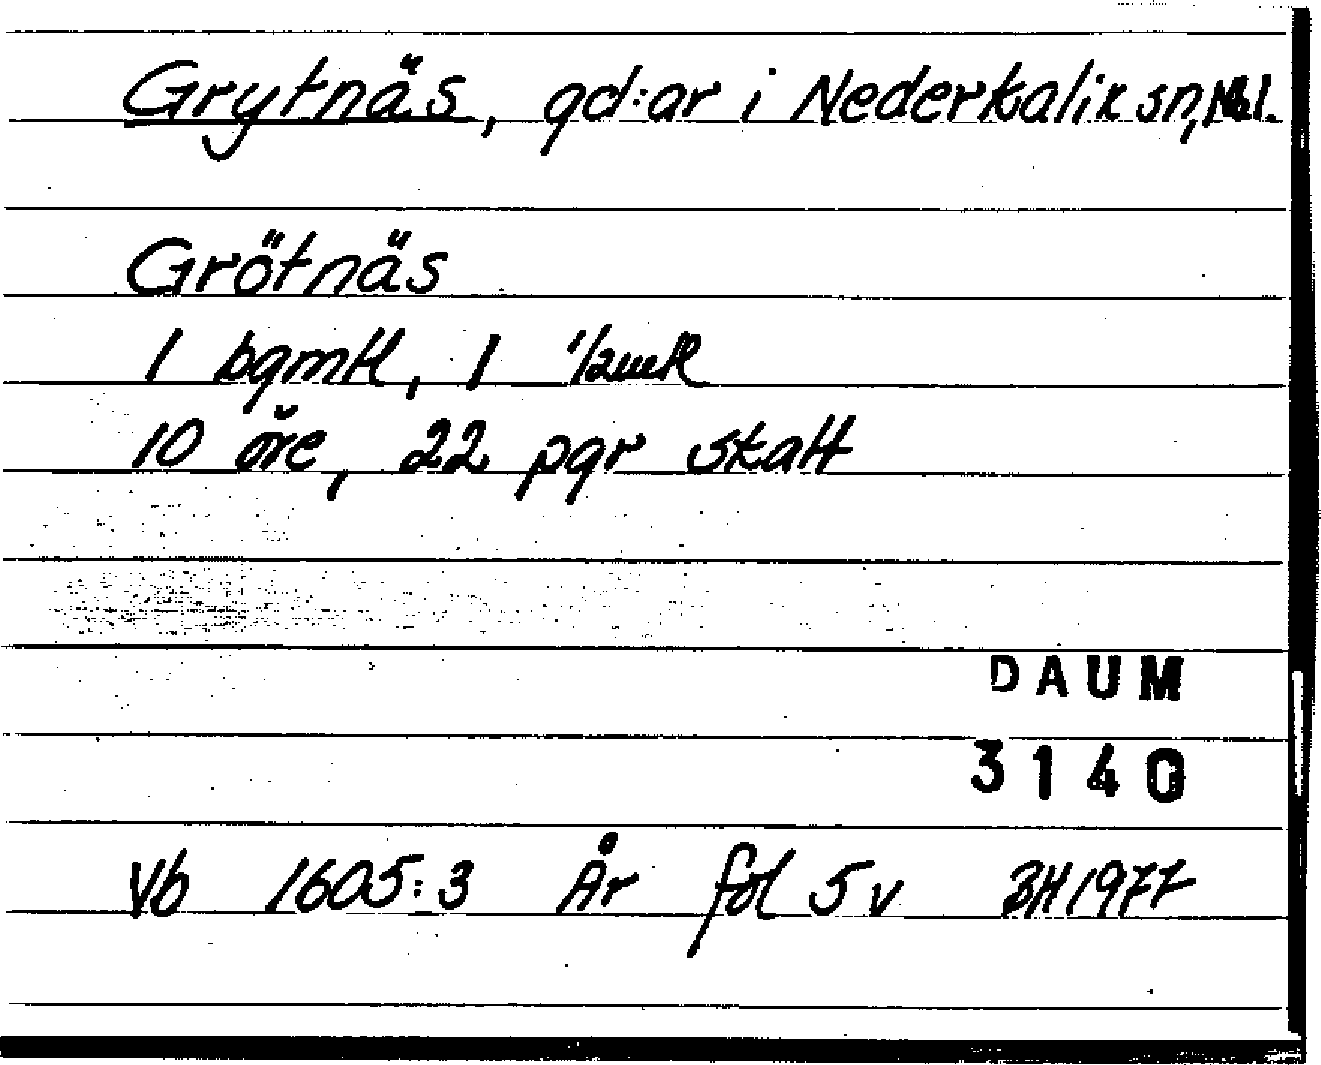 Grytnäs, gd:ar i Nederkalix sn, Nbl.
Grötnäs
1 bgmtl, 1 1/2mtl
10 öre, 22 pgr skatt
DAUM
3140
Vb 1605:3 År fol 5v BH 1977